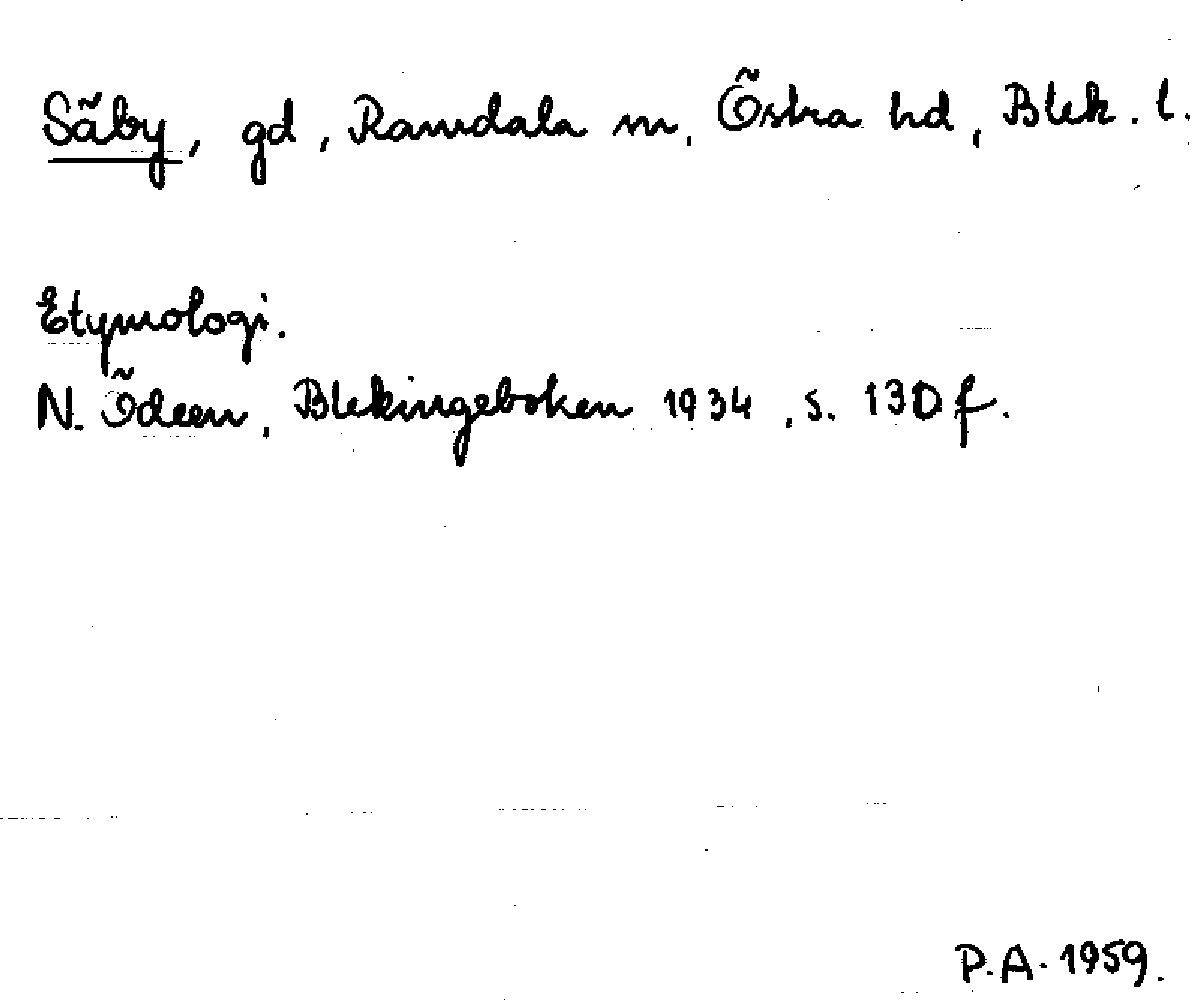 Säby, gd, Ramdala sn, Östra hd, Blek. l.
Etymologi.
N. Ödeen, Blekingeboken 1934, s. 130 f.
P.A. 1959.